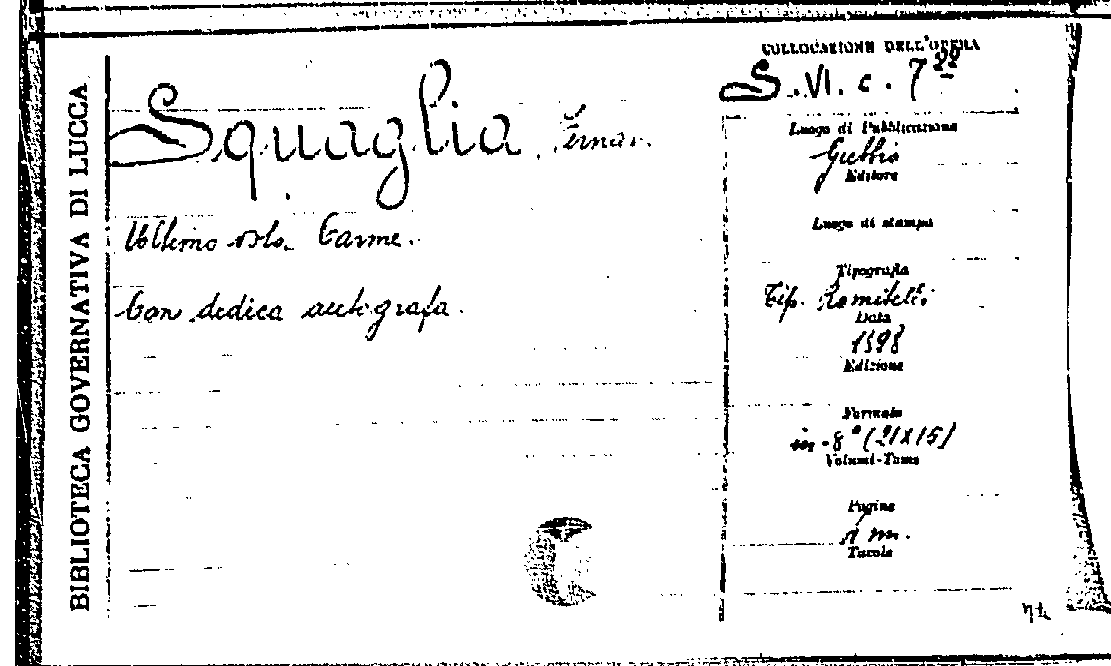 BIBLIOTECA GOVERNATIVA DI LUCCA
Squaglia
Carme.
Con dedica autografa.
COLLOCAZIONE DELL'OPERA
S. VI. c. 7 22
Luogo di Pubblicazione
Gubbio
Editore
Luogo di stampa
Tipografia
Tip. Romitelli
Data
1898
Edizione
Formato
in-8° (21x15)
Volumi-Tomo
Pagine
Tavole